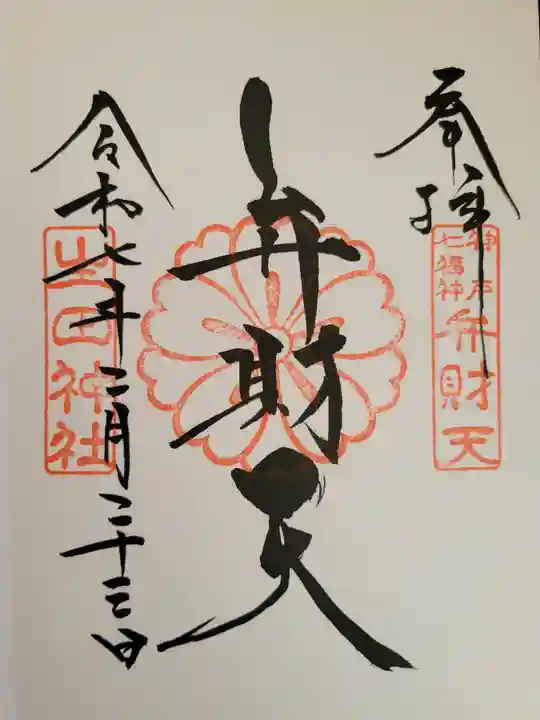 奉拝
神戸七福神
弁財天
弁財天
令和七年二月二十三日
生田神社